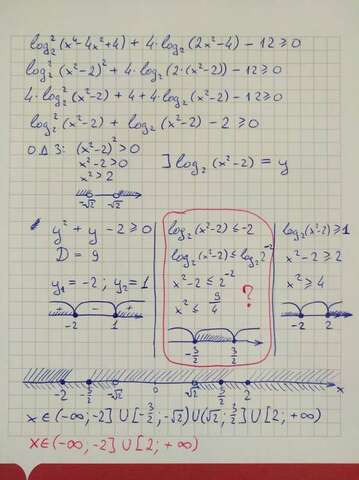 log₂²(x⁴-4x²+4) + 4·log₂(2x²-4) - 12 ≥ 0
log₂²(x²-2)² + 4·log₂(2·(x²-2)) - 12 ≥ 0
4·log₂²(x²-2) + 4 + 4·log₂(x²-2) - 12 ≥ 0
log₂²(x²-2) + log₂(x²-2) - 2 ≥ 0
ОДЗ: (x²-2)² > 0
x²-2 > 0
x² > 2
] log₂(x²-2) = y
-√2 -√2
y² + y - 2 ≥ 0
D = 9
y₁ = -2; y₂ = 1
+ - +
-2 1
log₂(x²-2) ≤ -2
log₂(x²-2) ≤ log₂2⁻²
x²-2 ≤ 2⁻²
x² ≤ 9/4
?
-3/2 3/2
log₂(x²-2) ≥ 1
x²-2 ≥ 2
x² ≥ 4
-2 2
-2 -3/2 -√2 0 √2 3/2 2 x
x∈(-∞;-2]∪[-3/2;-√2)∪(√2;3/2]∪[2;+∞)
x∈(-∞;-2]∪[2;+∞)